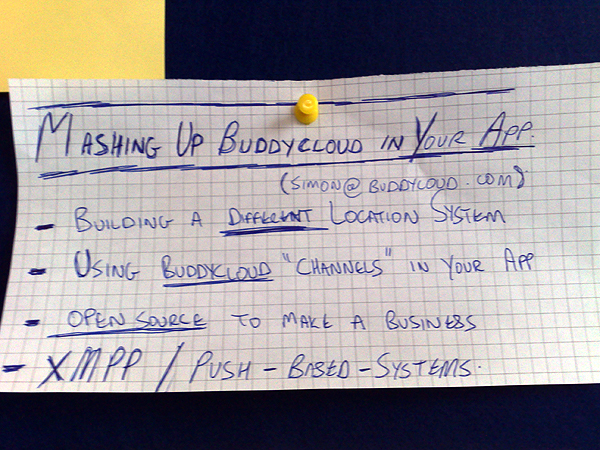 MASHING UP BUDDYCLOUD IN YOUR APP.
(SIMON@BUDDYCLOUD.COM)
- BUILDING A DIFFERENT LOCATION SYSTEM
- USING BUDDYCLOUD "CHANNELS" IN YOUR APP
- OPEN SOURCE TO MAKE A BUSINESS
- XMPP / PUSH-BASED-SYSTEMS.